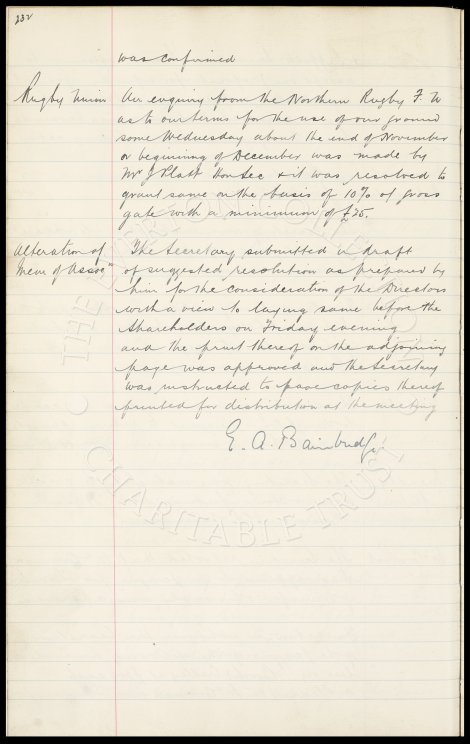 232
was confirmed
Rugby Union An enquiry from the Northern Rugby F. U
as to our terms for the use of our ground
some Wednesday about the end of November
or beginning of December was made by
Mr J Platt Hon Sec & it was resolved to
grant same on the basis of 10% of gross
gate with a minimum of £25.
Alteration of The Secretary submitted a draft
Mem of Assocn of suggested resolution as prepared by
him for the consideration of the Directors
with a view to laying same before the
Shareholders on Friday evening
and the print thereof on the adjoining
page was approved and the Secretary
was instructed to have copies thereof
printed for distribution at the meeting
E. A. Bainbridge
THE EVERTON
CHARITABLE TRUST